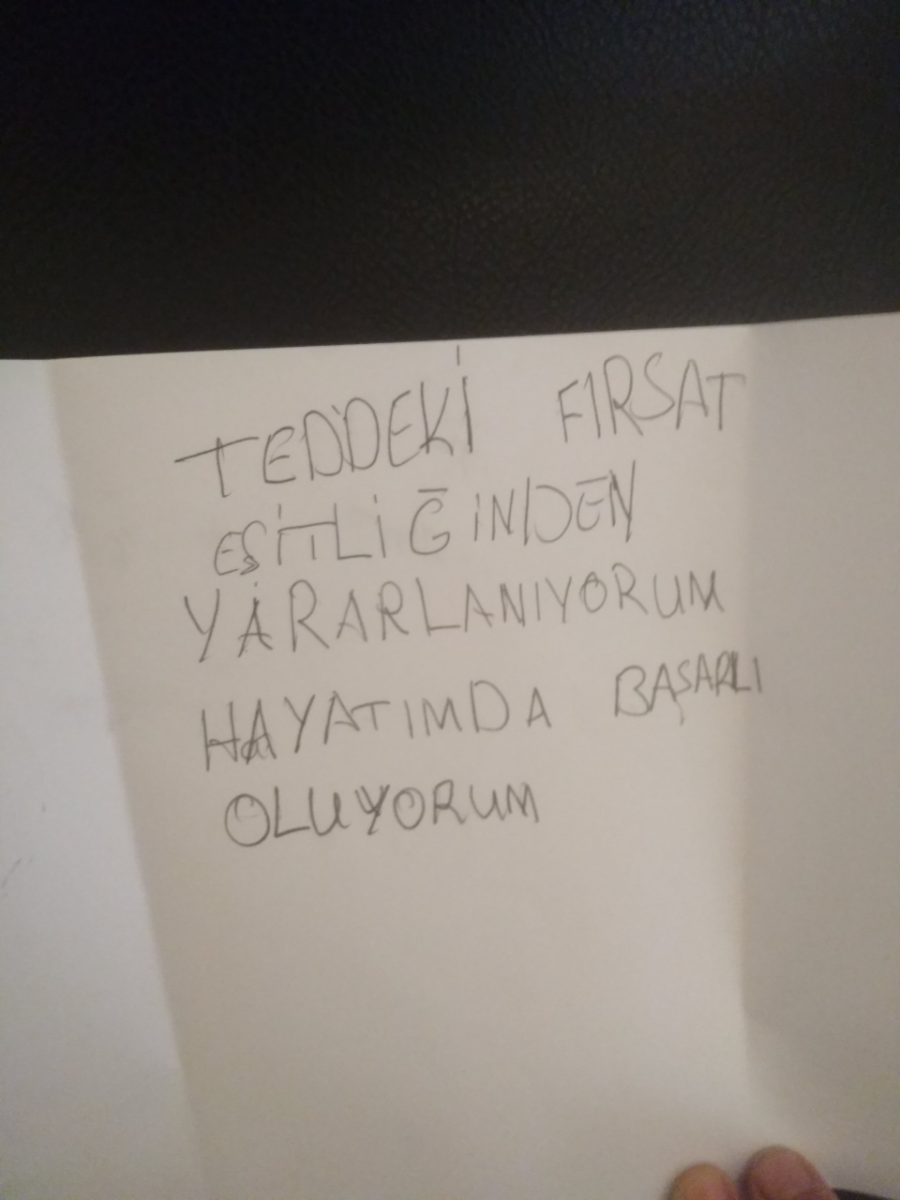 TED'DEKİ FIRSAT
EŞİTLİĞİNDEN
YARARLANIYORUM
HAYATIMDA BAŞARILI
OLUYORUM